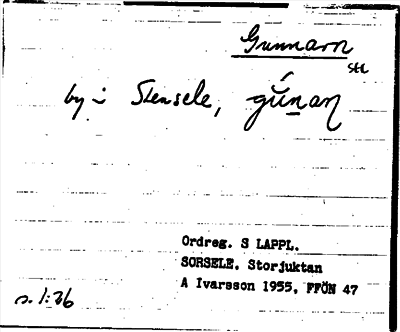 Gunnarn
stl
by i Stensele, gúnaɳ
Ordreg. S LAPPL.
SORSELE. Storjuktan
A Ivarsson 1955, FFÖN 47
s. 1:26